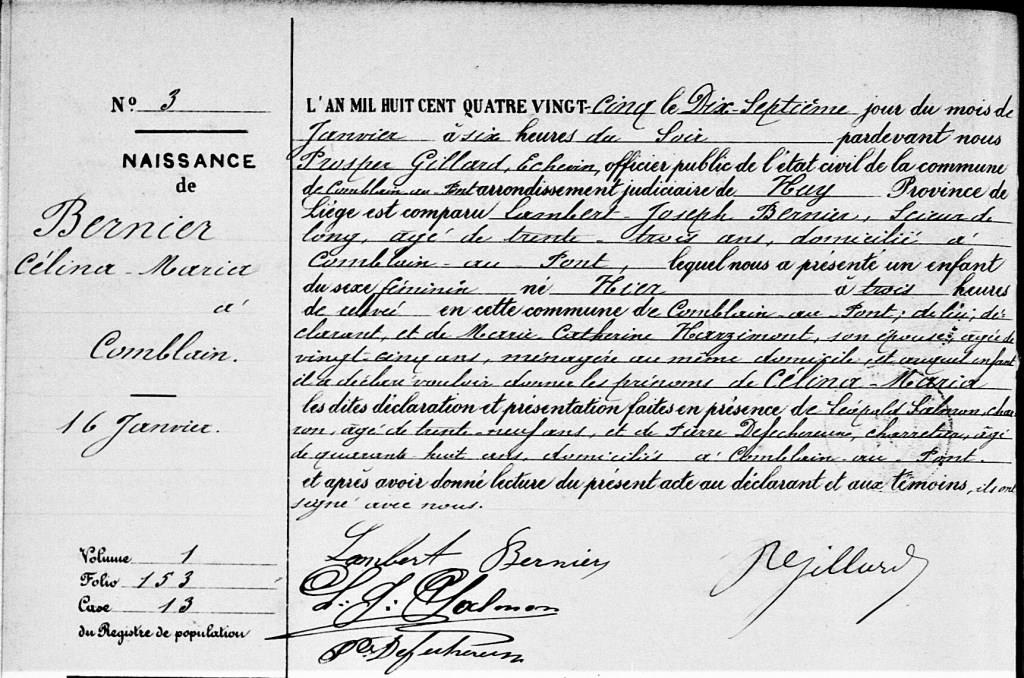 Nº 3
NAISSANCE
de
Bernier
Célina-Maria
à
Comblain.
16 Janvier.
Volume 1
Folio 153
Case 13
du Registre de population
L'AN MIL HUIT CENT QUATRE VINGT-Cinq le Dix-Septième jour du mois de
Janvier à six heures du Soir pardevant nous
Prosper Gillard, Echevin, officier public de l'état civil de la commune
de Comblain au Pont arrondissement judiciaire de Huy Province de
Liége est comparu Lambert-Joseph Bernier, Scieur de
long, agé de trente-trois ans, domicilié à
Comblain-au-Pont, lequel nous a présenté un enfant
du sexe féminin né Hier à trois heures
de relevé en cette commune de Comblain-au-Pont; de lui, dé-
clarant, et de Marie-Catherine Harzimont, son épouse, agée de
vingt-cinq ans, ménagère au même domicile et auquel enfant
il a déclaré vouloir donner les prénoms de Célina-Maria
les dites déclaration et présentation faites en présence de Léopold Salmon, char-
ron, agé de trente-neuf ans, et de Pierre Defechereux, charretier, âgé
de quarante-huit ans, domiciliés à Comblain-au-Pont.
et après avoir donné lecture du présent acte au déclarant et aux témoins, ils ont
signé avec nous.
Lambert Bernier
L: J: Salmon
Pre Defechereux
Gillard